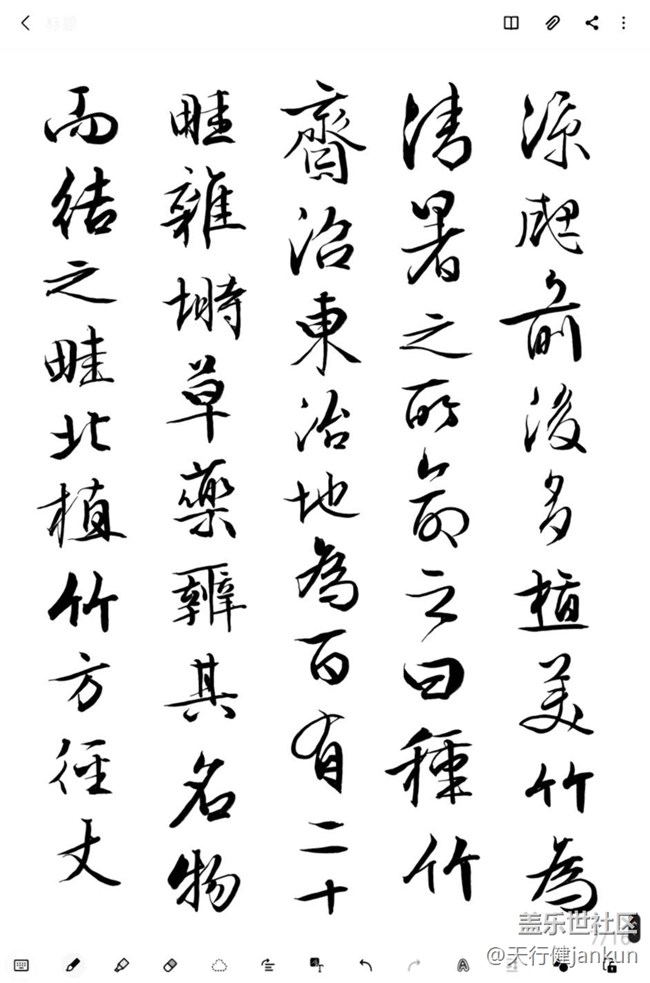 涼飔前後多植美竹為
清暑之所命之曰種竹
齋沼東治地為百有二十
畦雜塒草藥辨其名物
而結之畦北植竹方徑丈
盖乐世社区
7/16
@天行健jankun